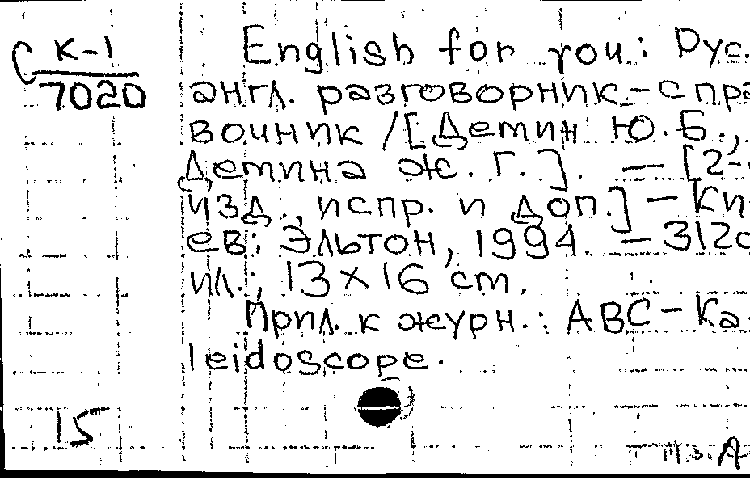 С К-1 English for you: Рус.
7020 англ. разговорник-спра
вочник /[Демин Ю.Б.,
Демина Ж.Г.]. — [2-
изд., испр. и доп.] — Ки
ев: Эльтон, 1994. — 312с
ил.; 13×16 cm.
Прил. к журн.: ABC-Ka
leidoscope.
15